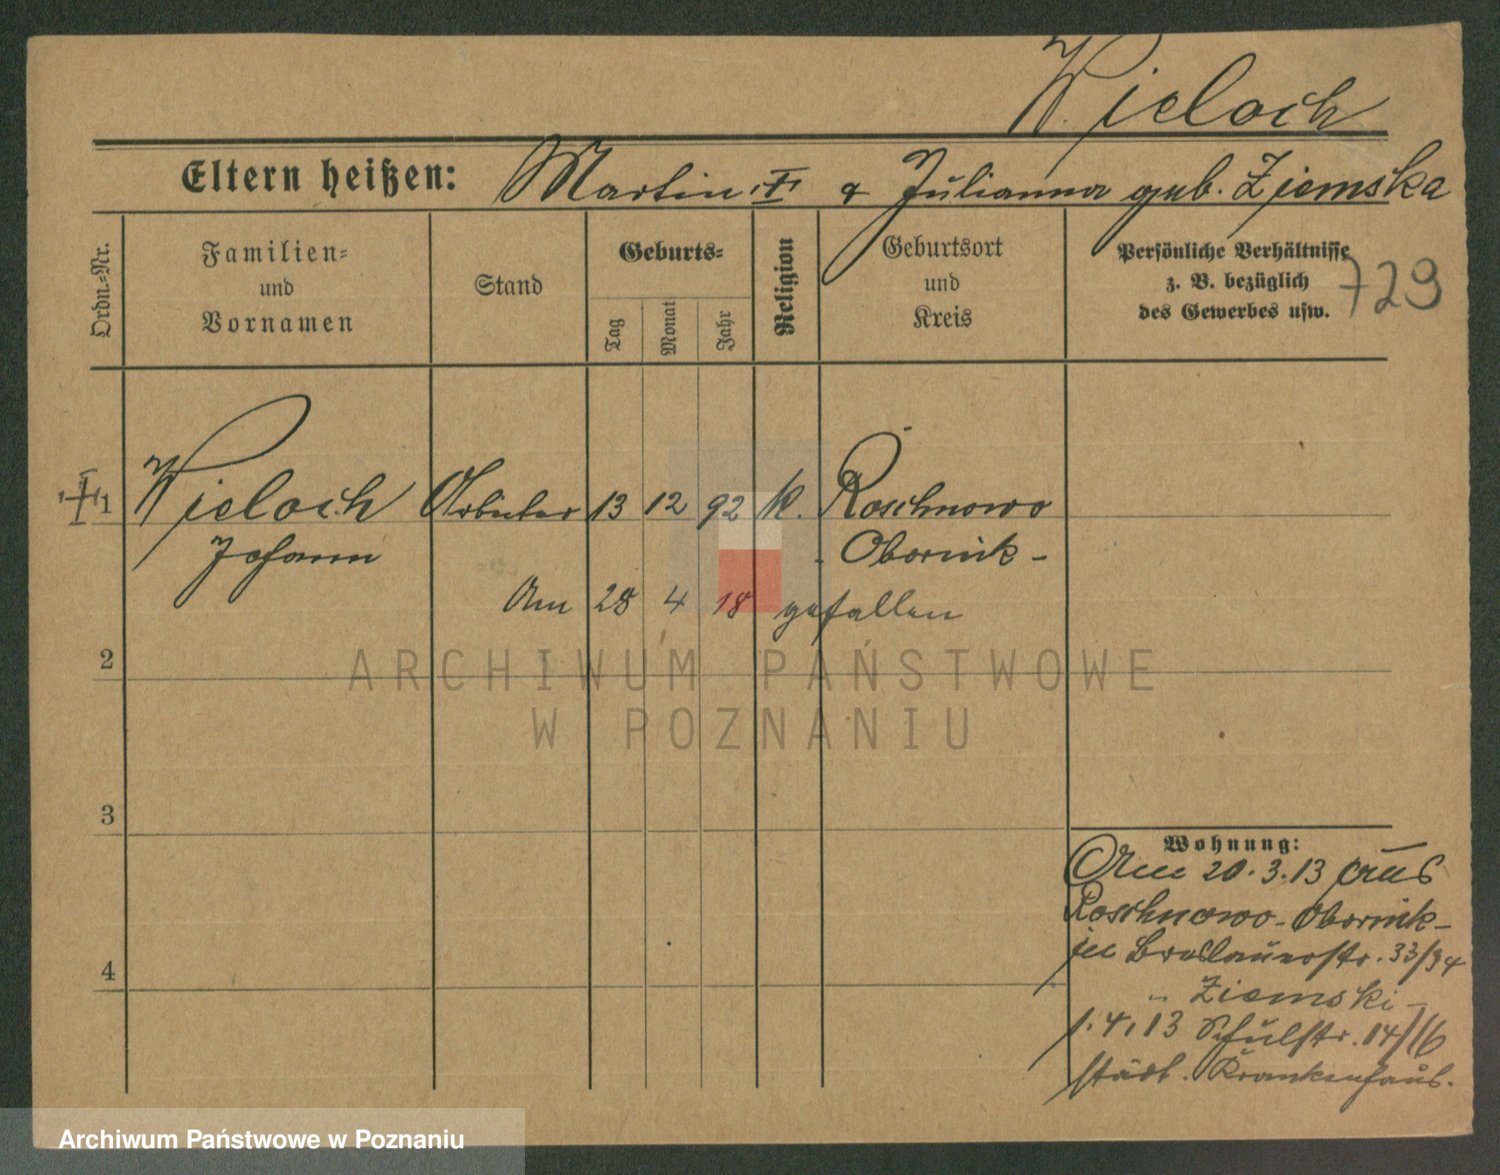 Wieloch
Eltern heißen: Martin † & Julianna geb. Ziemska
Ordn.-Nr.
Familien-
und
Vornamen
Stand
Geburts-
Tag
Monat
Jahr
Religion
Geburtsort
und
Kreis
Persönliche Verhältnisse
z. B. bezüglich
des Gewerbes usw.
729
† 1 Wieloch Arbeiter 13 12 92 k. Roschnowo
Johann - Obornik -
Am 28 4 18 gefallen
2
3
4
Wohnung:
Am 20.3.13 aus
Roschnowo-Obornik-
in Breslauerstr. 33/34
" Ziemski -
1.4.13 Schulstr. 14/16
städt. Krankenhaus.
ARCHIWUM PAŃSTWOWE
W POZNANIU
Archiwum Państwowe w Poznaniu